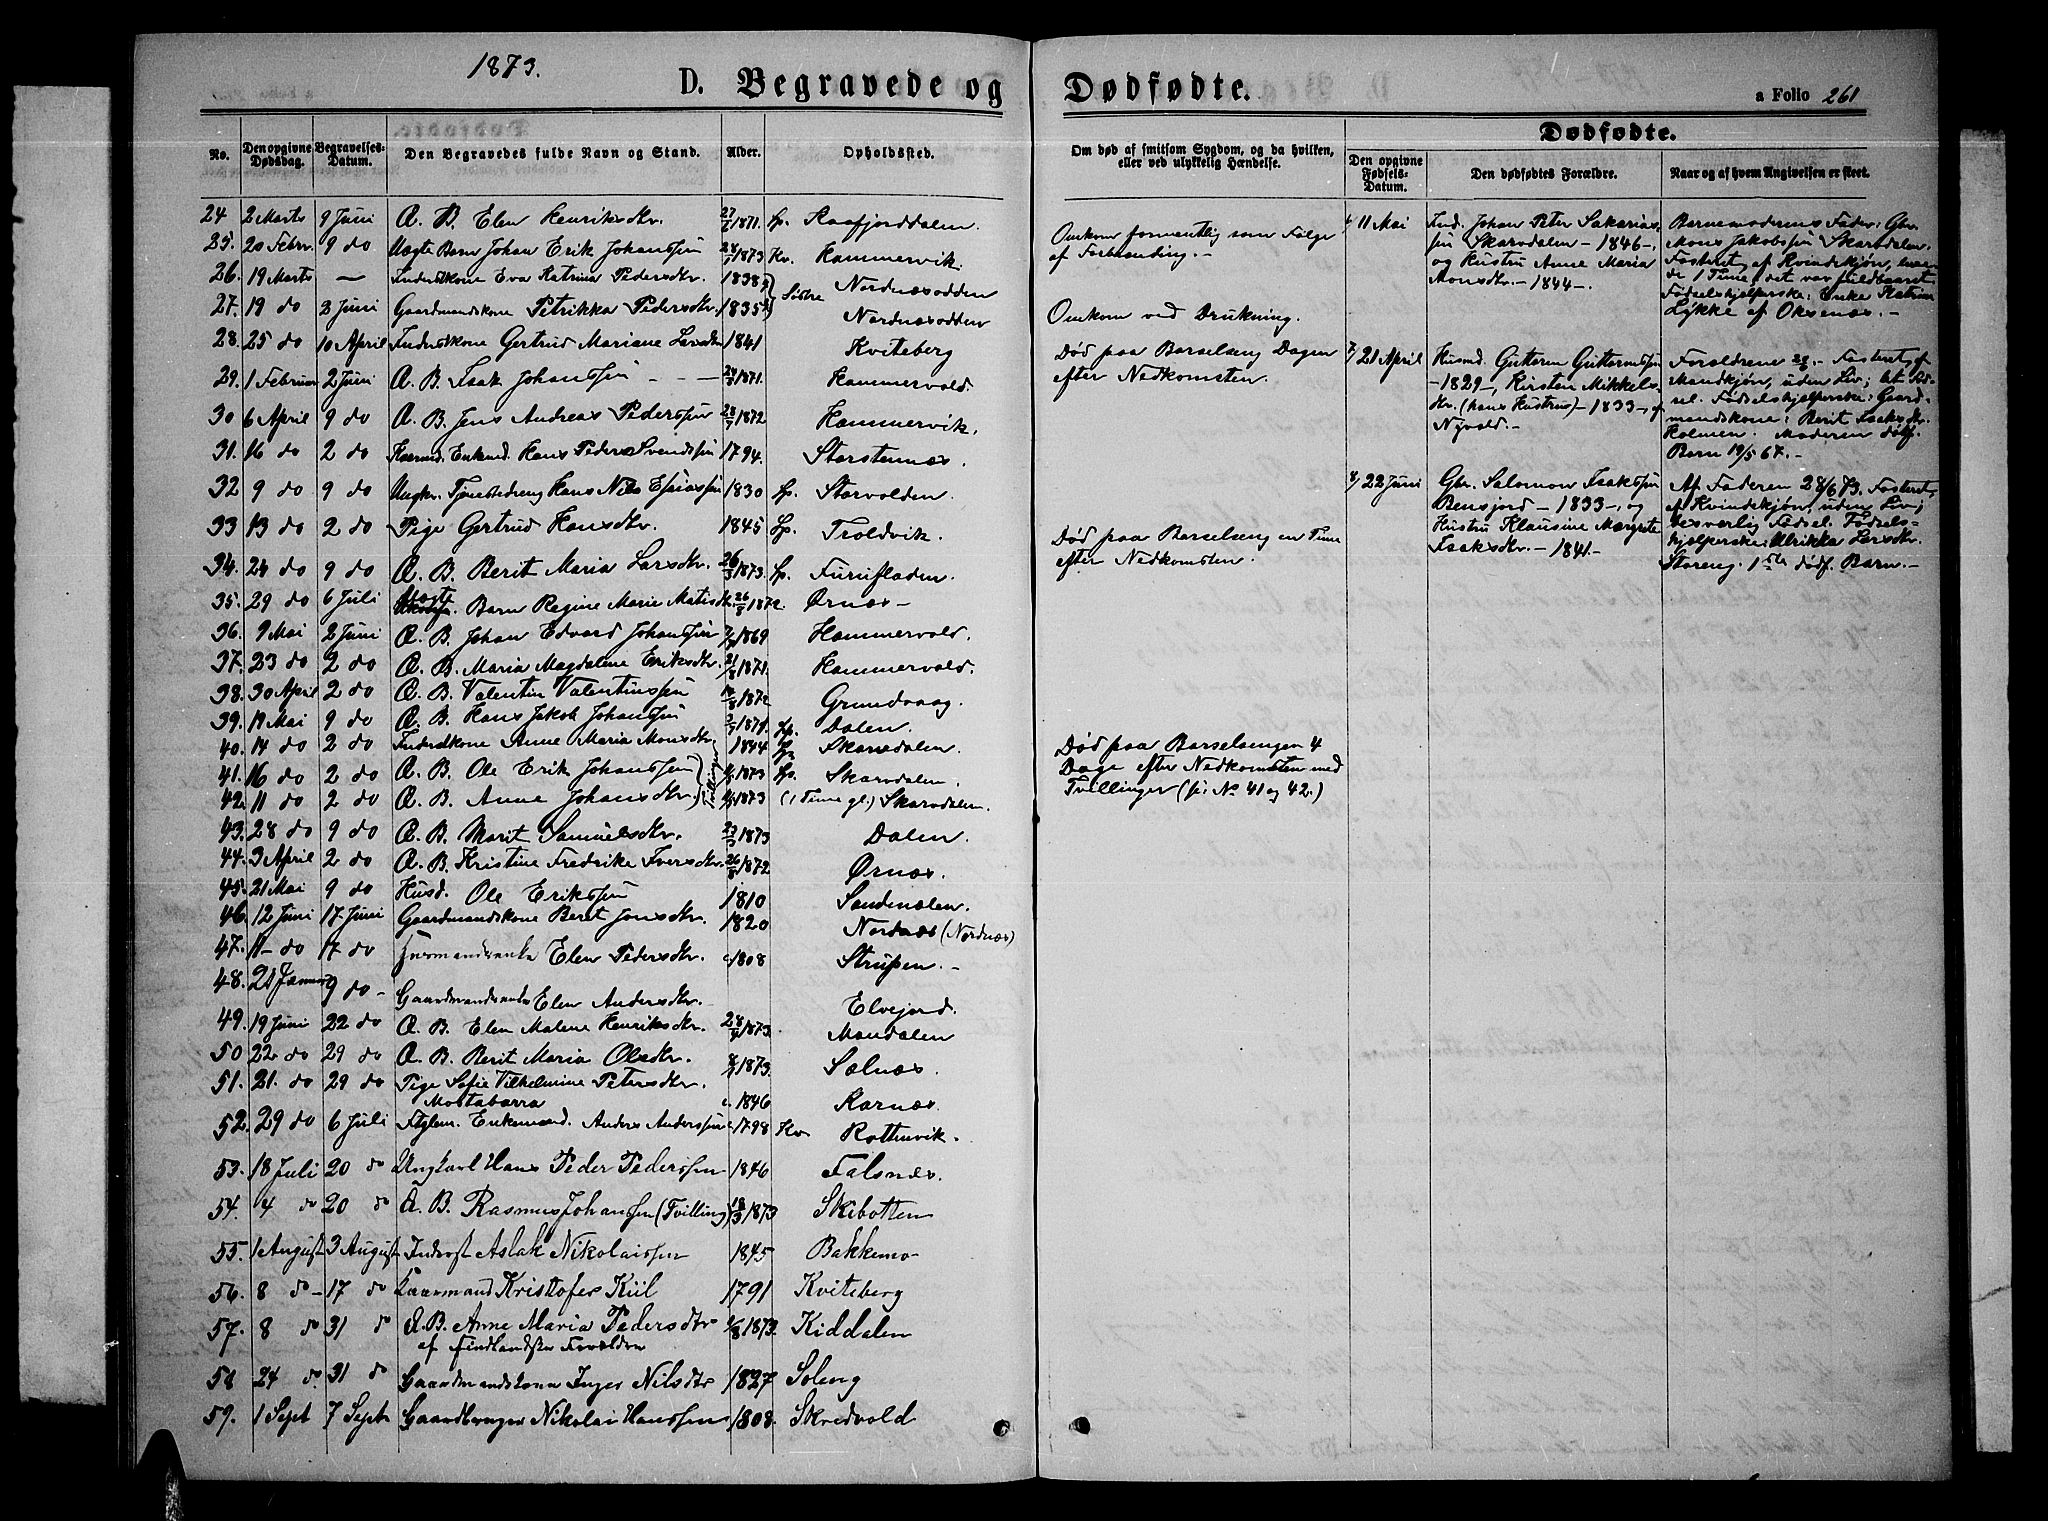 1873.
D. Begravede og Dødfødte.
a Folio 261
Dødfødte.
No. Den opgivne Dødsdag. Begravelses-Datum. Den Begravedes fulde Navn og Stand. Alder. Opholdssted.
Om død af smitsom Sygdom, og da hvilken, eller ved ulykkelig Hændelse.
Den opgivne Fødsels-Datum. Den dødfødtes Forældre. Naar og af hvem Angivelsen er skeet.
24 2 Marts 9 Juni Æ. B. Elen Henriksdtr. 1871. Sp. Raafjorddalen.
25. 20 Febr. 9 do Uægte Barn Johan Erik Johanssen 1873 Kv. Hammervik.
26. 19 Marts — Inderstkone Eva Katrina Pedersdtr. 1838 Søstre Nordnæsodden
27. 19 do 2 Juni Gaardmandskone Petrikka Pedersdtr. 1835 Nordnæsodden
28. 25 do 10 April Inderstkone Gertrud Mariane Larsdtr 1841 Kviteberg
29. 1 Februar 2 Juni Æ. B. Isak Johanssen - - - 1871. Hammervold.
30 6 April 9 do Æ. B. Jens Andreas Pederssen 1872 Hammervik.
31. 16 do 2 do Enkmd. Hans Peder Svendssen 1794. Storstennæs.
32 9 do 9 do Ungkr. Tjenestedreng Hans Nils Esiassen 1830 Sp. Storvolden
33 13 do 2 do Pige Gertrud Hansdtr. 1845 Sp. Troldvik.
34. 24 do 9 do Æ. B. Berit Maria Larsdtr. 26/3 1873. Sp. Furufladen.
35. 29 do 6 Juli Uægte Barn Regine Marie Matisdtr. 26/8 1872. Ørnæs -
36. 9 Mai 2 Juni Æ. B. Johan Edvard Johanssen 1869 Hammervold.
37. 23 do 2 do Æ. B. Maria Magdalene Eriksdtr. 21/8 1871. Hammervold.
38. 30 April 2 do Æ. B. Valentin Valentinssen 1872 Grundvaag.
39. 19 Mai 9 do Æ. B. Hans Jakob Johanssen 1871. Sp. Dalen.
40. 14 do 2 do Inderstkone Anne Maria Monsdtr. 1844 Sp. Skarvdalen.
41. 16 do 2 do Æ. B. Ole Erik Johanssen 1873 Sp. Skarvdalen.
42. 11 do 2 do Æ. B. Anne Johansdtr. Tvillinger 1873 (1 Time gl.) Skarvdalen.
43. 28 do 9 do Æ. B. Marit Samuelsdtr. 1873 Dalen.
44. 3 April 2 do Æ. B. Kristine Fredrike Iversdtr. 26/8 1872 Ørnæs.
45. 21 Mai 9 do Husd. Ole Erikssen 1810 Sandenalen.
46. 12 Juni 17 Juni Gaardmandskone Beret Jonsdtr. 1820 Nordnæs (Nordnæs)
47. 11 - do 17 do Husmandsenke Elen Pedersdtr. 1808 Strupen. -
48. 21 Januar 9 do - Gaardmandsenke Elen Andersdtr. Elvejord.
49. 19 Juni 22 do Æ. B. Elen Malene Henriksdtr. 1873 Mandalen
50 22 do 29 do Æ. B. Berit Maria Olsdtr. 1873. Salnæs.
51. 21. do 29 do Pige Sofie Vilhelmine Petersdtr.
Mostabarra c. 1846 Karnæs.
52. 29 do 6 Juli Ftglem. Enkemand. Anders Anderssen 1798 Kv Rottenvik.
53. 18 Juli 20 do Ungkarl Hans Peder Pederssen 1846 Falsnæs.
54. 4 do 20 do Æ. B. Rasmus Johanssen (Tvilling) 1873 Skibotten
55. 1 August 3 August Inderst Aslak Nikolaissen 1845 Bakkemo
56. 8 do - 17 do Gaarmand Kristofer Kiil 1791 Kviteberg
57. 8 do 31 do Æ. B. Anne Maria Pedersdtr 1873. Kiddalen
af Findlandske Forældre
58 24 do. 31 do Gaardmandskone Inger Nilsdtr 1827 Soleng
59. 1 Sept 7 Sept Gaardbruger Nikolai Hanssen 1808. Skredvold
Omkom formentlig som Følge
af Forblanding. -
Omkom ved Drukning.
Død paa Barselseng Dagen
efter Nedkomsten.
Død paa Barselseng en Time
efter Nedkomsten.
Død paa Barselsengen 4
Dage efter Nedkomsten med
Tvillinger (fr: No 41 og 42.)
11 Mai
Ind. Johan Peter Sakarias-
sen Skarvdalen - 1846 -,
og Hustru Anne Maria
Monsdtr. - 1844 -
Barnemoderens Fader: Gbr.
Mons Jakobssen Skarvdalen.
Fosteret af Kvindekjøn, leve-
de 1 Time, det var fuldbaaret.
Fødselshjelperske: Enke Katrine
Lykke af Oksenæs. -
7/ 21 April
Husmd. Guttorm Guttormssen
- 1829 -, Kirsten Mikkels-
dtr. (hans Hustru) - 1833 -, af
Nyvold. -
Forældrene - Fosteret af
Mandkjøn, uden Liv;
Fødselshjelperske: Gaard-
mandskone: Berit Isaksdtr.
Holmen. Moderen dødf.
Barn 19/5 67. -
8/ 22 Juni
Gbr. Salomon Isakssen
Bensjord - 1833 -, og
Hustru Klausine Margrete
Isaksdtr. - 1841 -
Af Faderen 28/6 73. Fosteret
af Kvindekjøn, uden Liv;
besværlig Fødsel. Fødsels-
hjelperske: Ulrikka Larsdtr.
Storeng. 1ste dødf. Barn. -